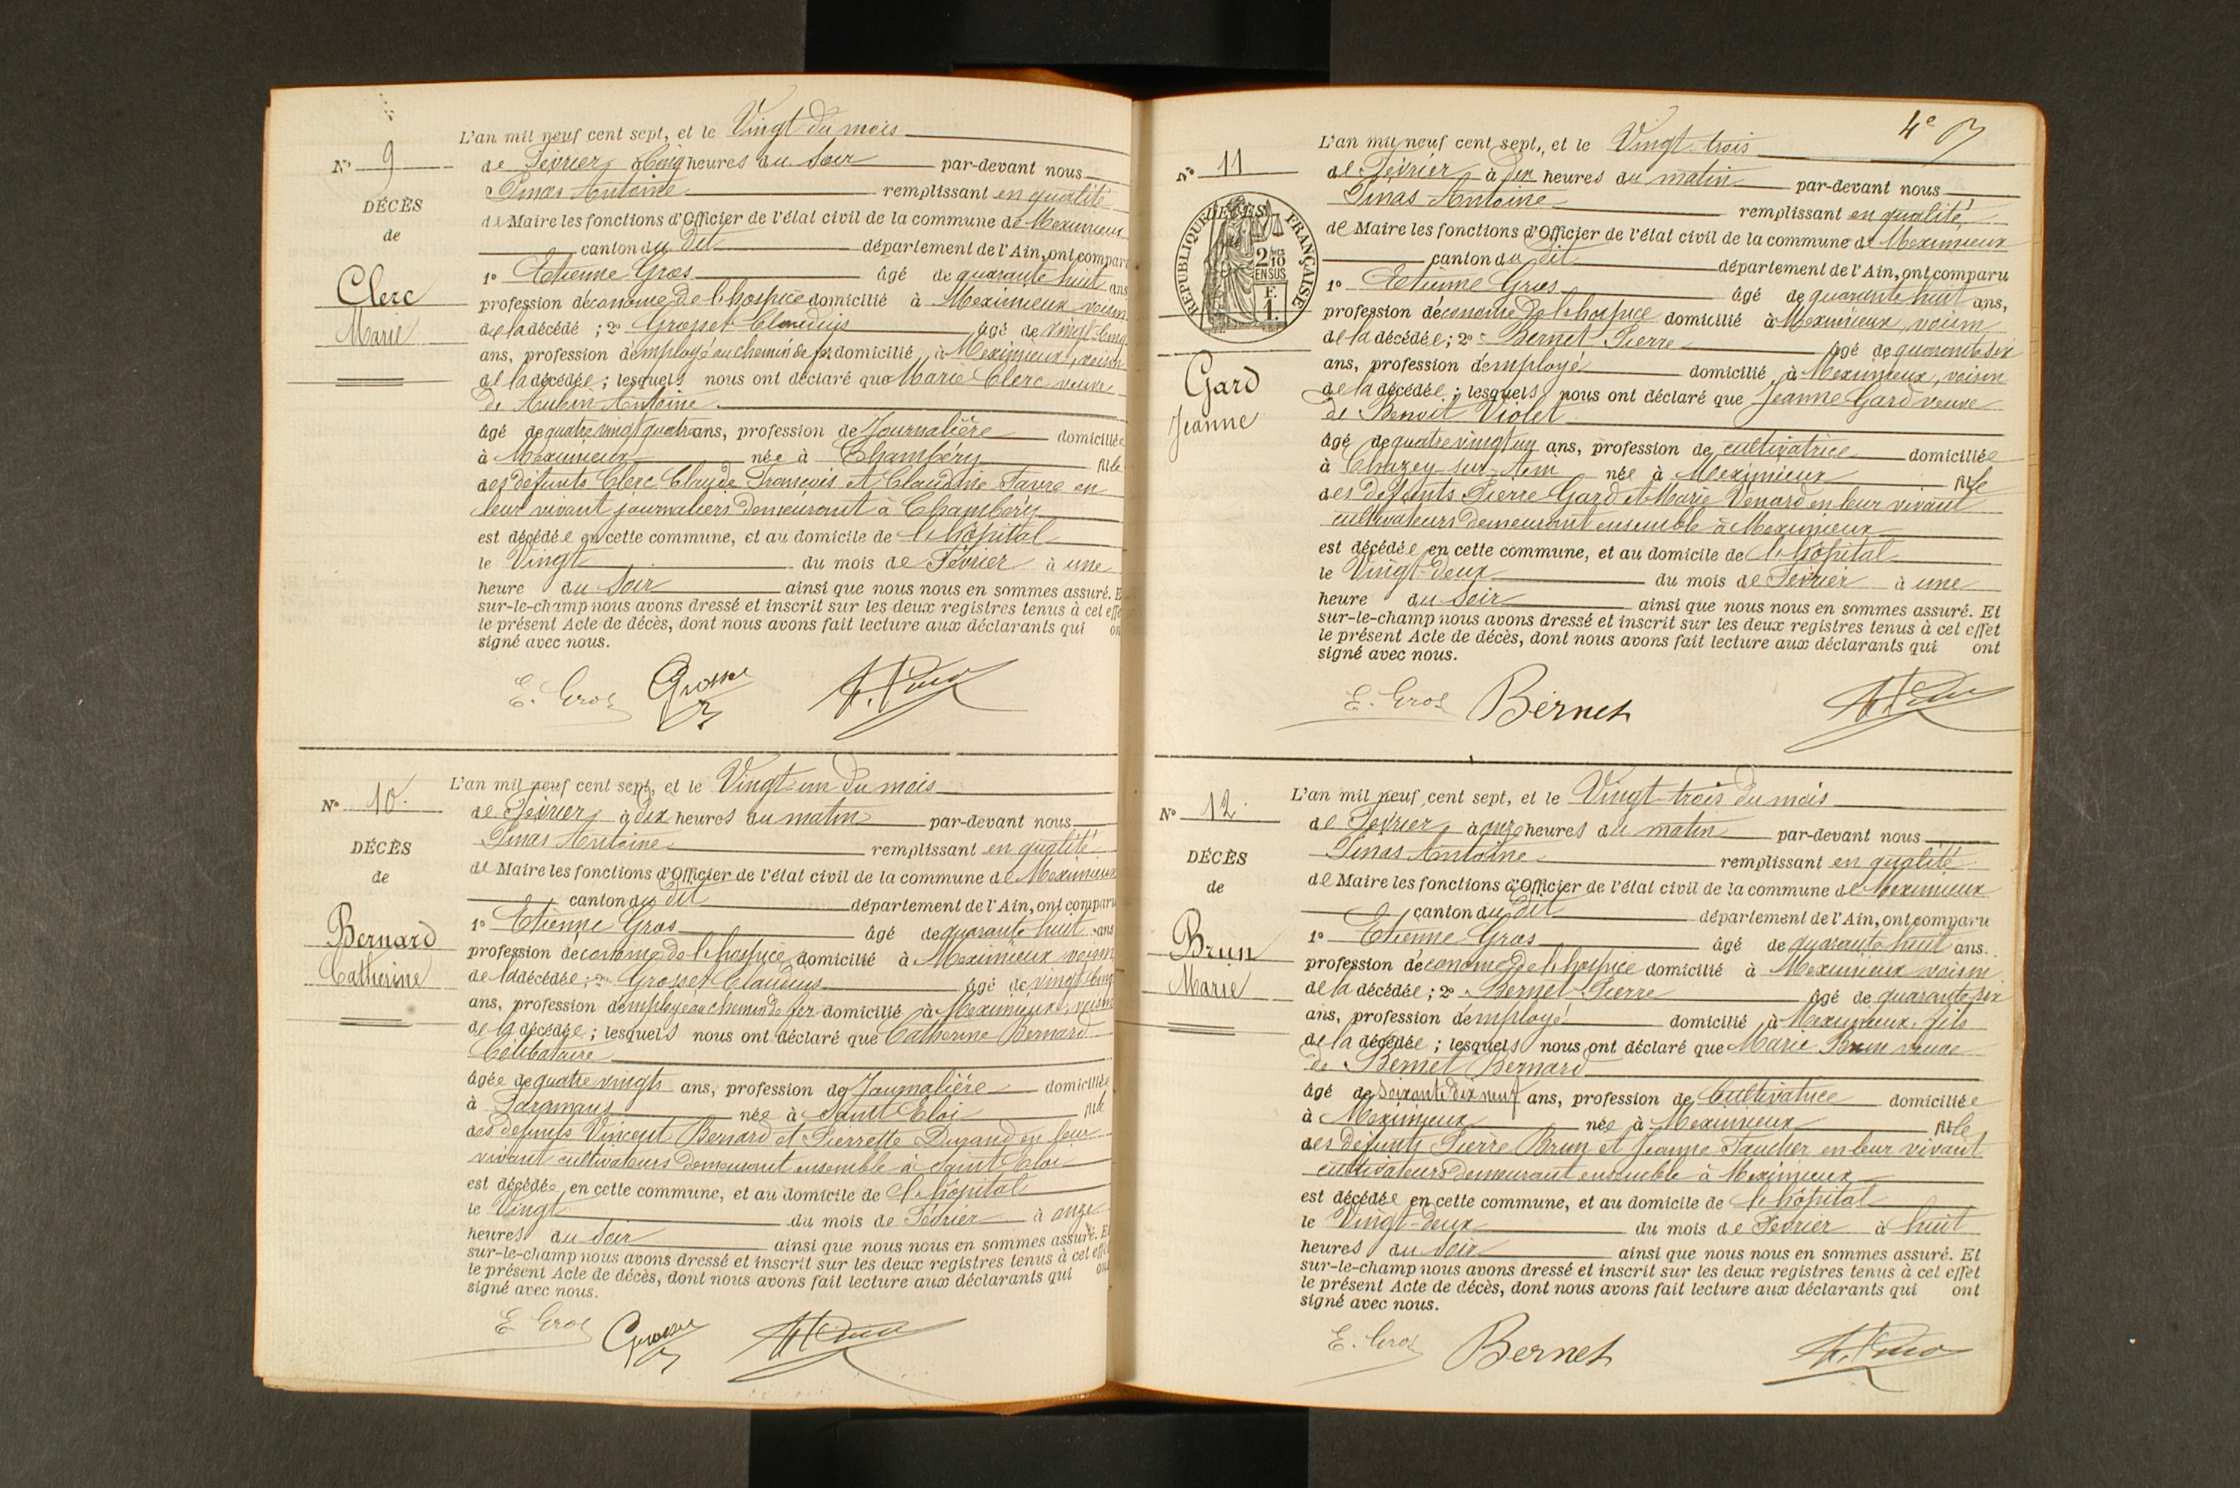 L'an mil neuf cent sept, et le Vingt du mois
N° 9
de Février à Cinq heures du Soir par-devant nous
Pinas Antoine remplissant en qualité
DÉCÈS
de Maire les fonctions d'Officier de l'état civil de la commune de Meximieux
de
canton du dit département de l'Ain, ont compar
1° Etienne Gros âgé de quarante huit ans
Clerc
profession d'économe de l'hospice domicilié à Meximieux voisin
Marie
de la décédé ; 2° Grosset Claudius âgé de vingt-cinq
ans, profession d'employé au chemin de fer domicilié à Meximieux, voisin
de la décédée ; lesquels nous ont déclaré que Marie Clerc veuve
de Aubin Antoine
âgé de quatre vingt quatre ans, profession de Journalière domiciliée
à Meximieux née à Chambéry fille
des défunts Clerc Claude François et Claudine Favre en
leur vivant journaliers demeurant à Chambéry
est décédée en cette commune, et au domicile de l'hôpital
le Vingt du mois de Février à une
heure du Soir ainsi que nous nous en sommes assuré. E
sur-le-champ nous avons dressé et inscrit sur les deux registres tenus à cet effe
le présent Acte de décès, dont nous avons fait lecture aux déclarants qui on
signé avec nous.
E. Gros Grosset A. Pinas
L'an mil neuf cent sept, et le Vingt-un du mois
N° 10
de Février à dix heures du matin par-devant nous
Pinas Antoine remplissant en qualité
DÉCÈS
de Maire les fonctions d'Officier de l'état civil de la commune de Meximieux
de
canton du dit département de l'Ain, ont comparu
1° Etienne Gros âgé de quarante huit ans
Bernard
profession d'économe de l'hospice domicilié à Meximieux voisin
Catherine
de la décédée ; 2° Grosset Claudius âgé de vingt-cinq
ans, profession d'employé au chemin de fer domicilié à Meximieux, voisin
de la décédée ; lesquels nous ont déclaré que Catherine Bernard
Célibataire
âgée de quatre vingts ans, profession de Journalière domiciliée
à née à Saint Eloi fille
des défunts Vincent Bernard et Pierrette Durand en leur
vivant cultivateurs demeurant ensemble à Saint Eloi
est décédée en cette commune, et au domicile de l'hôpital
le Vingt du mois de Février à onze
heures du Soir ainsi que nous nous en sommes assuré. E
sur-le-champ nous avons dressé et inscrit sur les deux registres tenus à cet effe
le présent Acte de décès, dont nous avons fait lecture aux déclarants qui on
signé avec nous.
E. Gros Grosset A. Pinas
4e
L'an mil neuf cent sept, et le Vingt-trois
N° 11
de Février à dix heures du matin par-devant nous
Pinas Antoine remplissant en qualité
RÉPUBLIQUE FRANÇAISE
2/10 EN SUS
F. 1.
de Maire les fonctions d'Officier de l'état civil de la commune de Meximieux
canton du dit département de l'Ain, ont comparu
1° Etienne Gros âgé de quarante huit ans,
profession d'économe de l'hospice domicilié à Meximieux, voisin
de la décédée ; 2° Bernet Pierre âgé de quarante six
ans, profession d'employé domicilié à Meximieux, voisin
Gard
Jeanne
de la décédée ; lesquels nous ont déclaré que Jeanne Gard veuve
de Benoit Violet
âgé de quatre vingt un ans, profession de cultivatrice domiciliée
à Chazey-sur-Ain née à Meximieux fille
des défunts Pierre Gard et Marie Venard en leur vivant
cultivateurs demeurant ensemble à Meximieux
est décédée en cette commune, et au domicile de l'hôpital
le Vingt-deux du mois de Février à une
heure du Soir ainsi que nous nous en sommes assuré. Et
sur-le-champ nous avons dressé et inscrit sur les deux registres tenus à cet effet
le présent Acte de décès, dont nous avons fait lecture aux déclarants qui ont
signé avec nous.
E. Gros Bernet A. Pinas
L'an mil neuf cent sept, et le Vingt-trois du mois
N° 12
de Février à onze heures du matin par-devant nous
Pinas Antoine remplissant en qualité
DÉCÈS
de Maire les fonctions d'Officier de l'état civil de la commune de Meximieux
de
canton du dit département de l'Ain, ont comparu
1° Etienne Gros âgé de quarante huit ans.
Brun
profession d'économe de l'hospice domicilié à Meximieux voisin
Marie
de la décédée ; 2° Bernet Pierre âgé de quarante six
ans, profession d'employé domicilié à Meximieux, fils
de la décédée ; lesquels nous ont déclaré que Marie Brun veuve
de Bernet Bernard
âgé de soixante dix neuf ans, profession de Cultivatrice domiciliée
à Meximieux née à Meximieux fille
des défunts Pierre Brun et Jeanne Faucher en leur vivant
cultivateurs demeurant ensemble à Meximieux
est décédée en cette commune, et au domicile de l'hôpital
le Vingt-deux du mois de Février à huit
heures du Soir ainsi que nous nous en sommes assuré. Et
sur-le-champ nous avons dressé et inscrit sur les deux registres tenus à cet effet
le présent Acte de décès, dont nous avons fait lecture aux déclarants qui ont
signé avec nous.
E. Gros Bernet A. Pinas